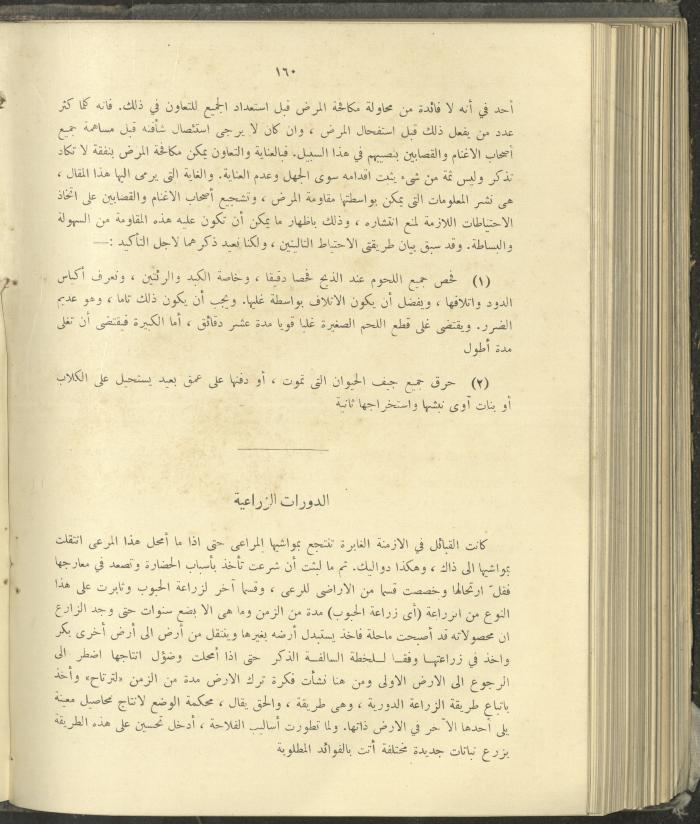 ١٦٠
أحد في أنه لا فائدة من محاولة مكافحة المرض قبل استعداد الجميع للتعاون في ذلك. فانه كما كثر
عدد من يفعل ذلك قبل استفحال المرض ، وان كان لا يرجى استئصال شأفته قبل مساهمة جميع
أصحاب الاغنام والقصابين بنصيبهم في هذا السبيل. فبالعناية والتعاون يمكن مكافحة المرض بنفقة لا تكاد
تذكر وليس ثمة من شيء يثبت اقدامه سوى الجهل وعدم العناية. والغاية التى يرمى اليها هذا المقال ،
هى نشر المعلومات التى يمكن بواسطتها مقاومة المرض ، وتشجيع أصحاب الاغنام والقصابين على اتخاذ
الاحتياطات اللازمة لمنع انتشاره ، وذلك باظهار ما يمكن أن تكون عليه هذه المقاومة من السهولة
والبساطة. وقد سبق بيان طريقتى الاحتياط التاليتين ، ولكنا نعيد ذكرهما لاجل التأكيد :—
(١) فحص جميع اللحوم عند الذبح فحصا دقيقا ، وخاصة الكبد والرئتين ، وتعرف أكياس
الدود واتلافها ، ويفضل أن يكون الاتلاف بواسطة غليها. ويجب أن يكون ذلك تاما ، وهو عديم
الضرر. ويقتضى غلى قطع اللحم الصغيرة غليا قويا مدة عشر دقائق ، أما الكبيرة فيقتضى أن تغلى
مدة أطول
(٢) حرق جميع جيف الحيوان التى تموت ، أو دفنها على عمق بعيد يستحيل على الكلاب
أو بنات آوى نبشها واستخراجها ثانية
الدورات الزراعية
كانت القبائل في الازمنة الغابرة تنتجع بمواشيها المراعى حتى اذا ما أمحل هذا المرعى انتقلت
بمواشيها الى ذاك ، وهكذا دواليك. ثم ما لبثت أن شرعت تأخذ بأسباب الحضارة وتصعد في معارجها
فقلّ ارتحالها وخصصت قسما من الاراضى للرعى ، وقسما آخر لزراعة الحبوب وثابرت على هذا
النوع من الزراعة (أى زراعة الحبوب) مدة من الزمن وما هى الا بضع سنوات حتى وجد الزارع
ان محصولاته قد أصبحت ماحلة فاخذ يستبدل أرضه بغيرها وينتقل من أرض الى أرض أخرى بكر
واخذ في زراعتها وفقا للخطة السالفة الذكر حتى اذا أمحلت وضؤل انتاجها اضطر الى
الرجوع الى الارض الاولى ومن هنا نشأت فكرة ترك الارض مدة من الزمن «لترتاح» وأخذ
باتباع طريقة الزراعة الدورية ، وهى طريقة ، والحق يقال ، محكمة الوضع لانتاج محاصيل معينة
يلى أحدها الآخر في الارض ذاتها. ولما تطورت أساليب الفلاحة ، أدخل تحسين على هذه الطريقة
بزرع نباتات جديدة مختلفة أتت بالفوائد المطلوبة